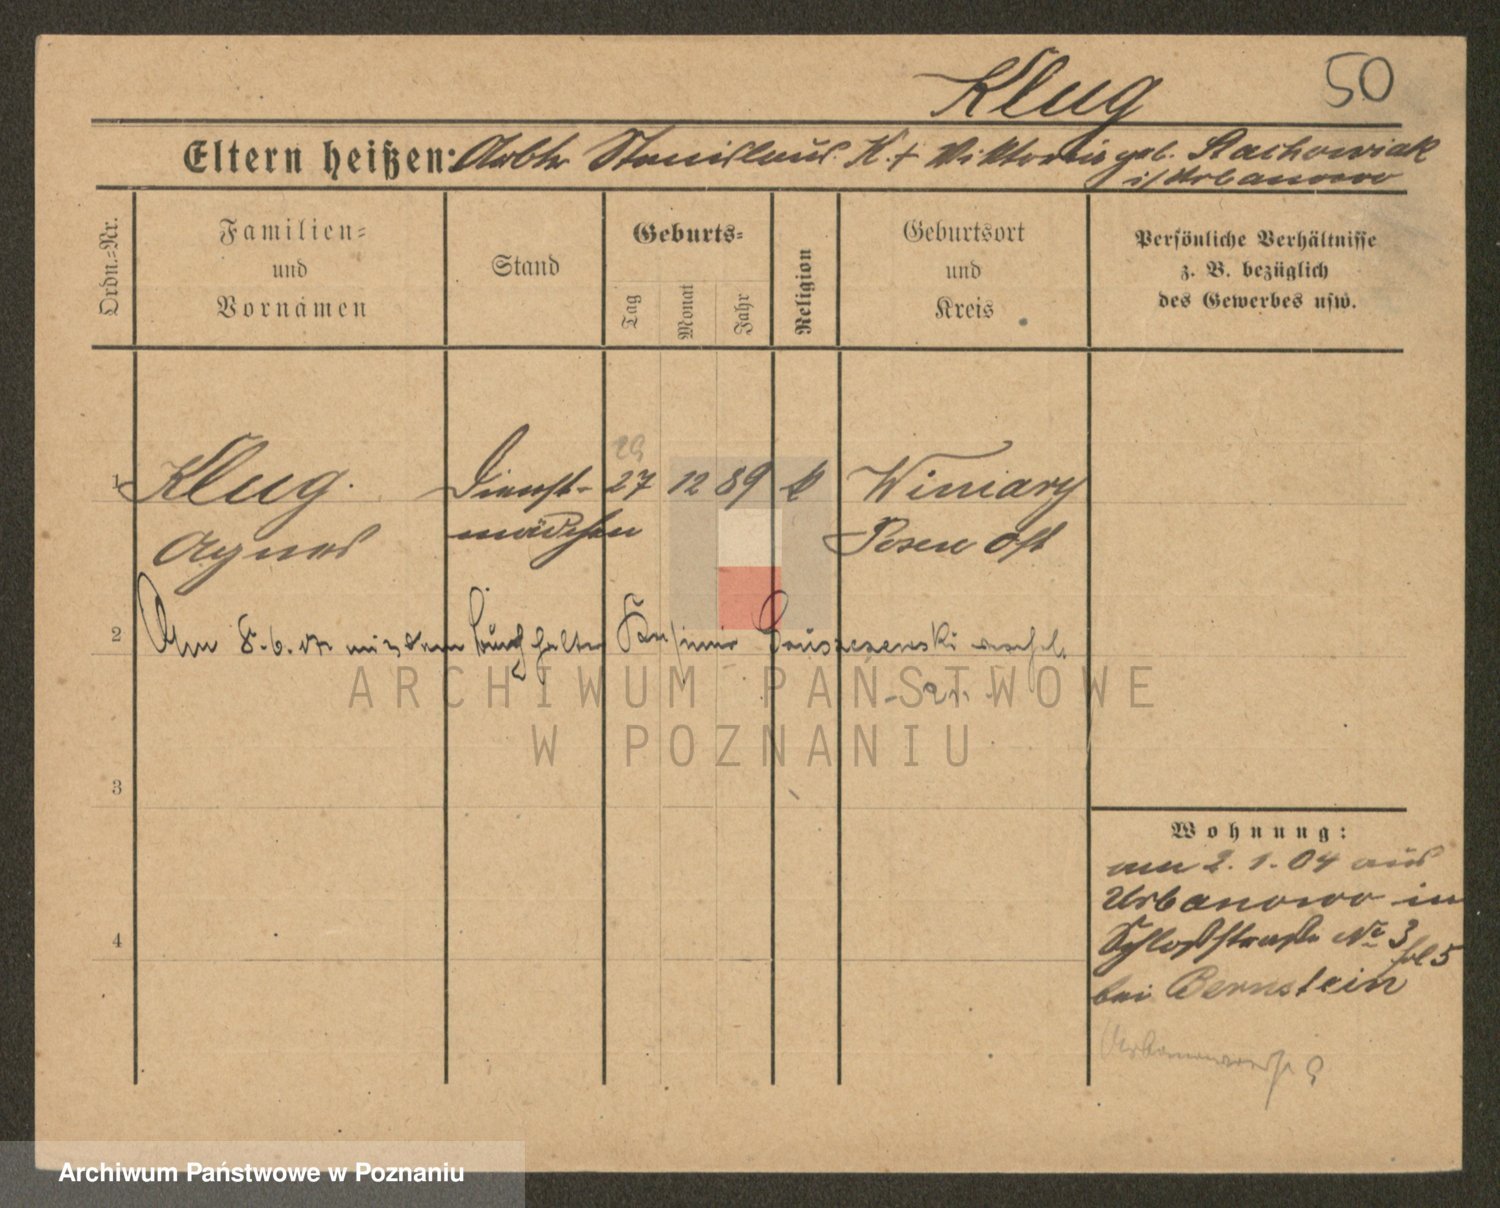 Klug
50
Eltern heißen: Arbtr Stanislaus K. + Viktoria geb. Stachowiak
i/Urbanowo
Ordn.-Nr.
Familien-
und
Vornamen
Stand
Geburts-
Tag
Monat
Jahr
Religion
Geburtsort
und
Kreis
Persönliche Verhältnisse
z. B. bezüglich
des Gewerbes usw.
1 Klug. Dienst- 27 12 89 k Winiary
29
Agnes mädchen Posen Ost
2 Am 8.6. mit dem Buchhalter Kasimir
ARCHIWUM PAŃSTWOWE
W POZNANIU
3
4
Wohnung:
am 2.1.04 aus
Urbanowo in
Schloßstraße No 3
bei Bernstein
Archiwum Państwowe w Poznaniu